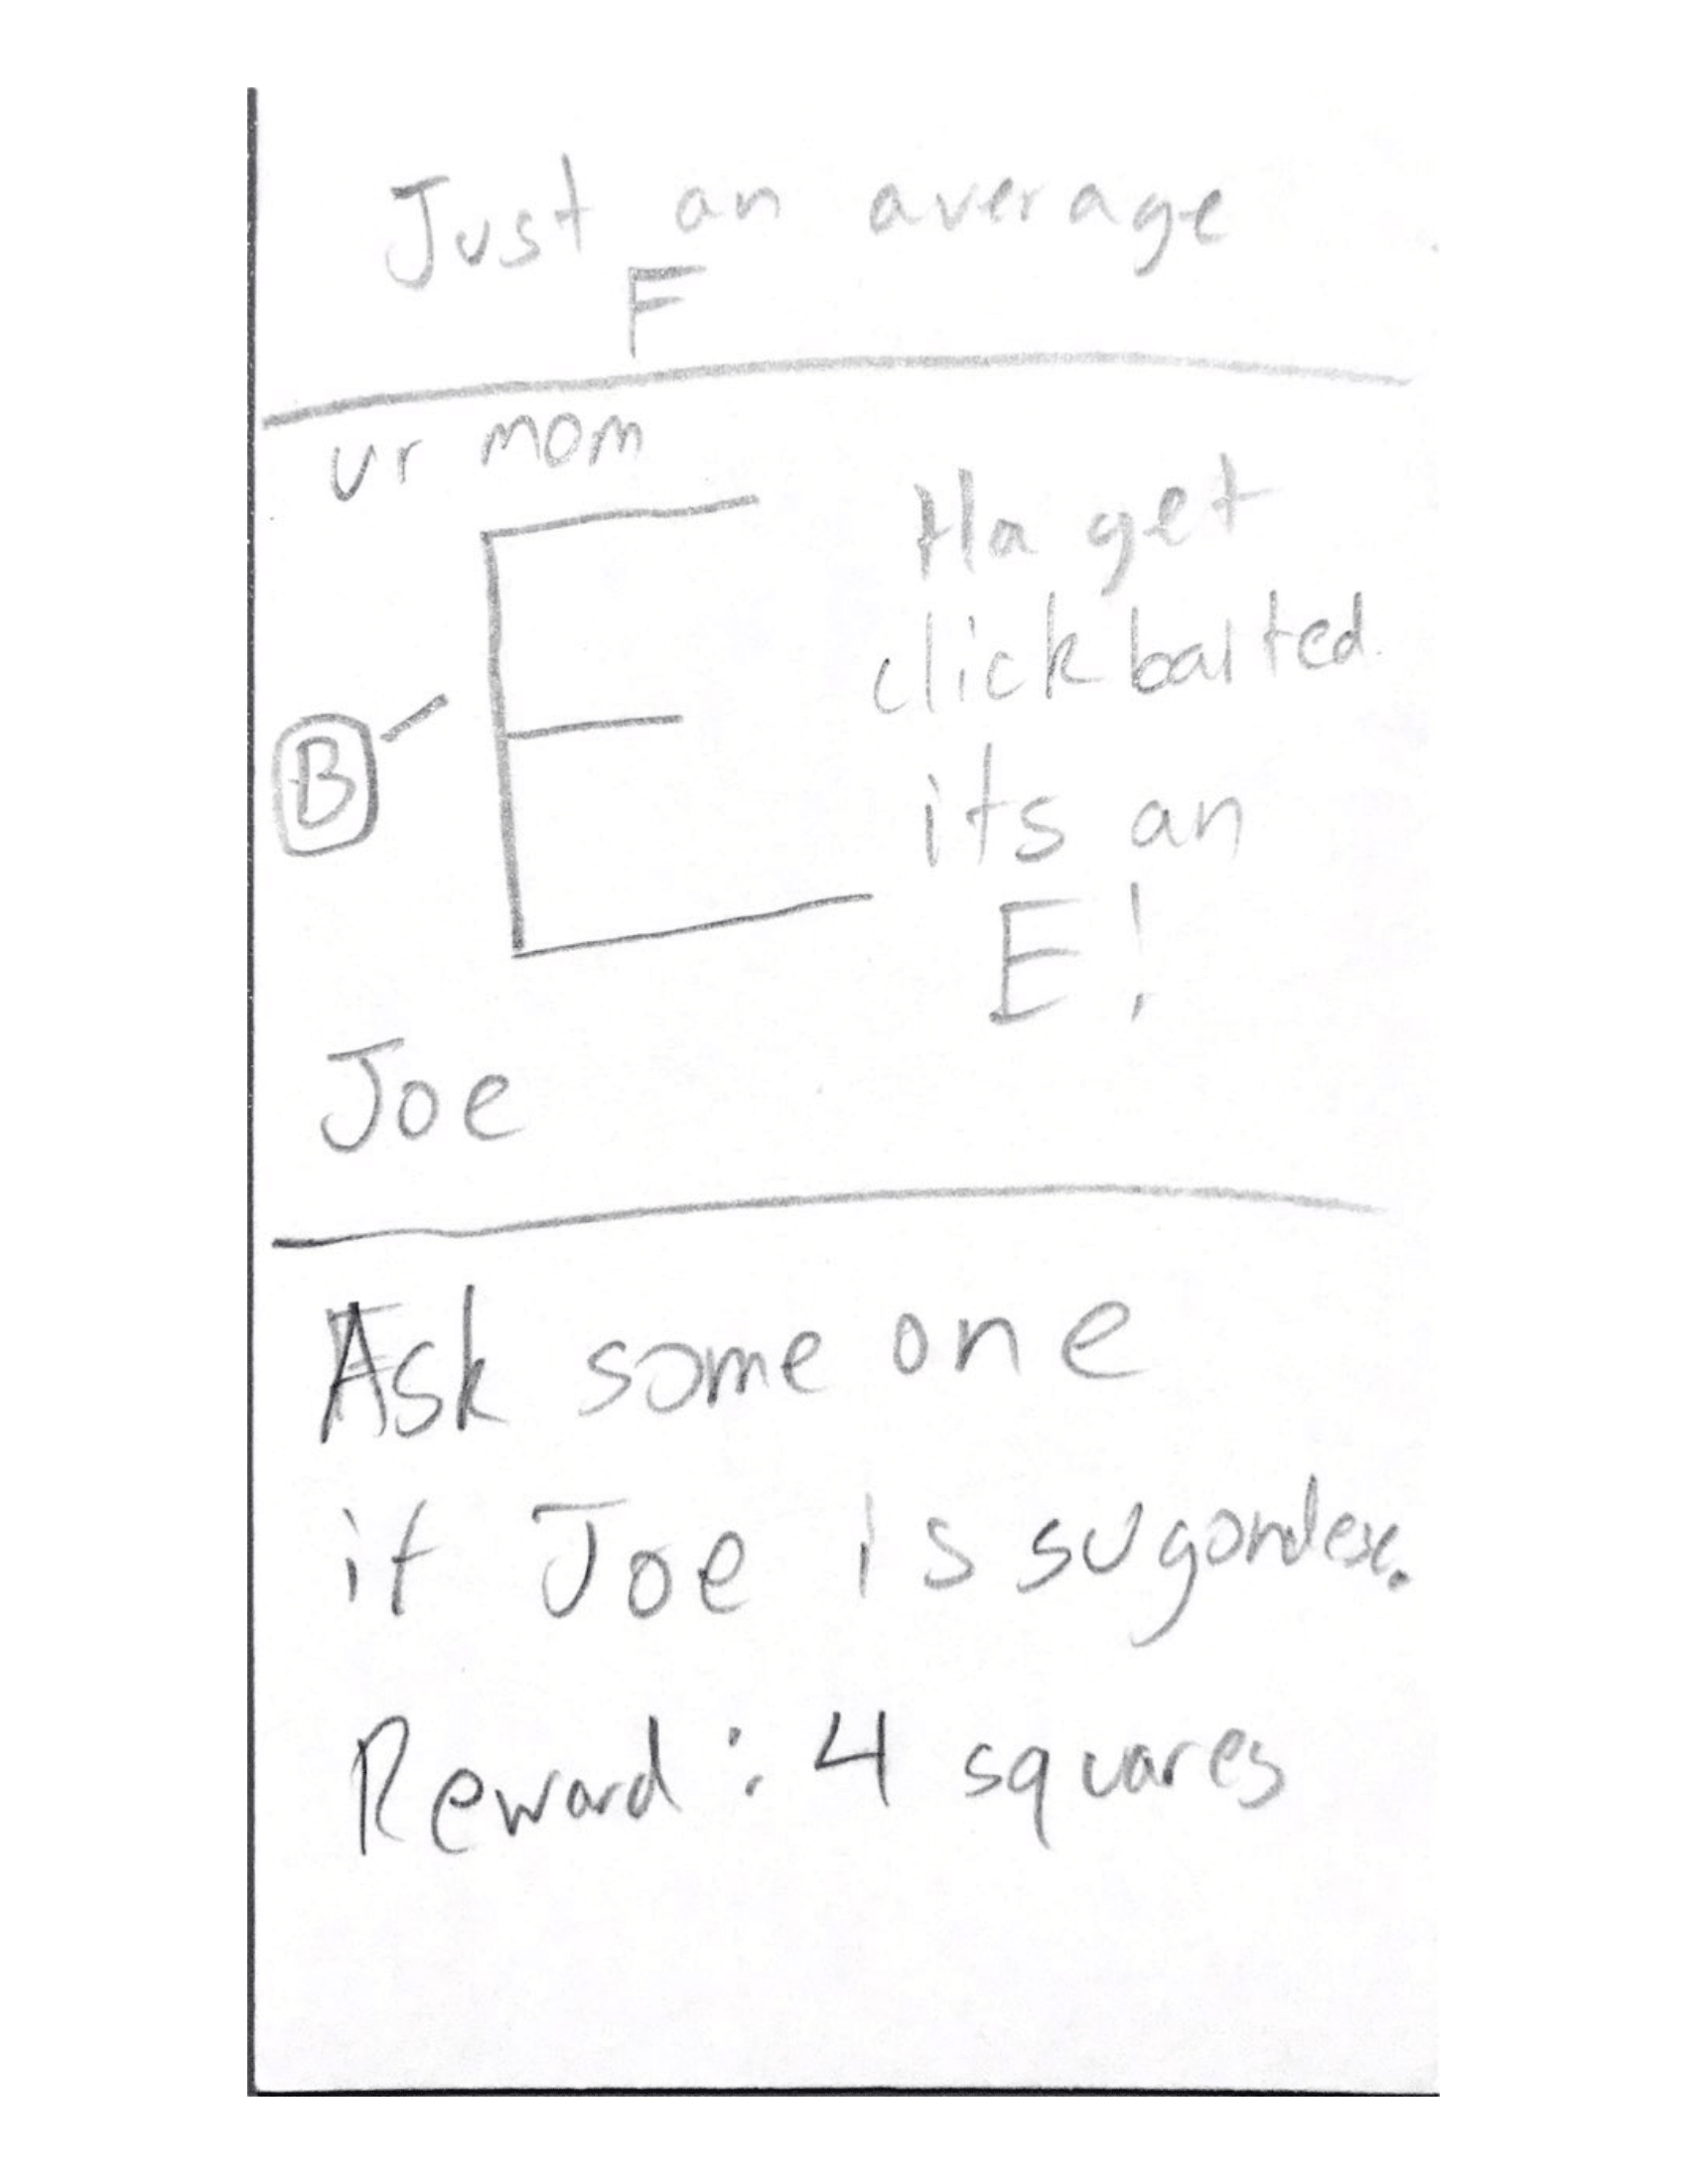 Just an average
F
ur mom
Ha get
clickbaited
its an
E!
E
B
Joe
Ask some one
if Joe is sugondese.
Reward: 4 squares